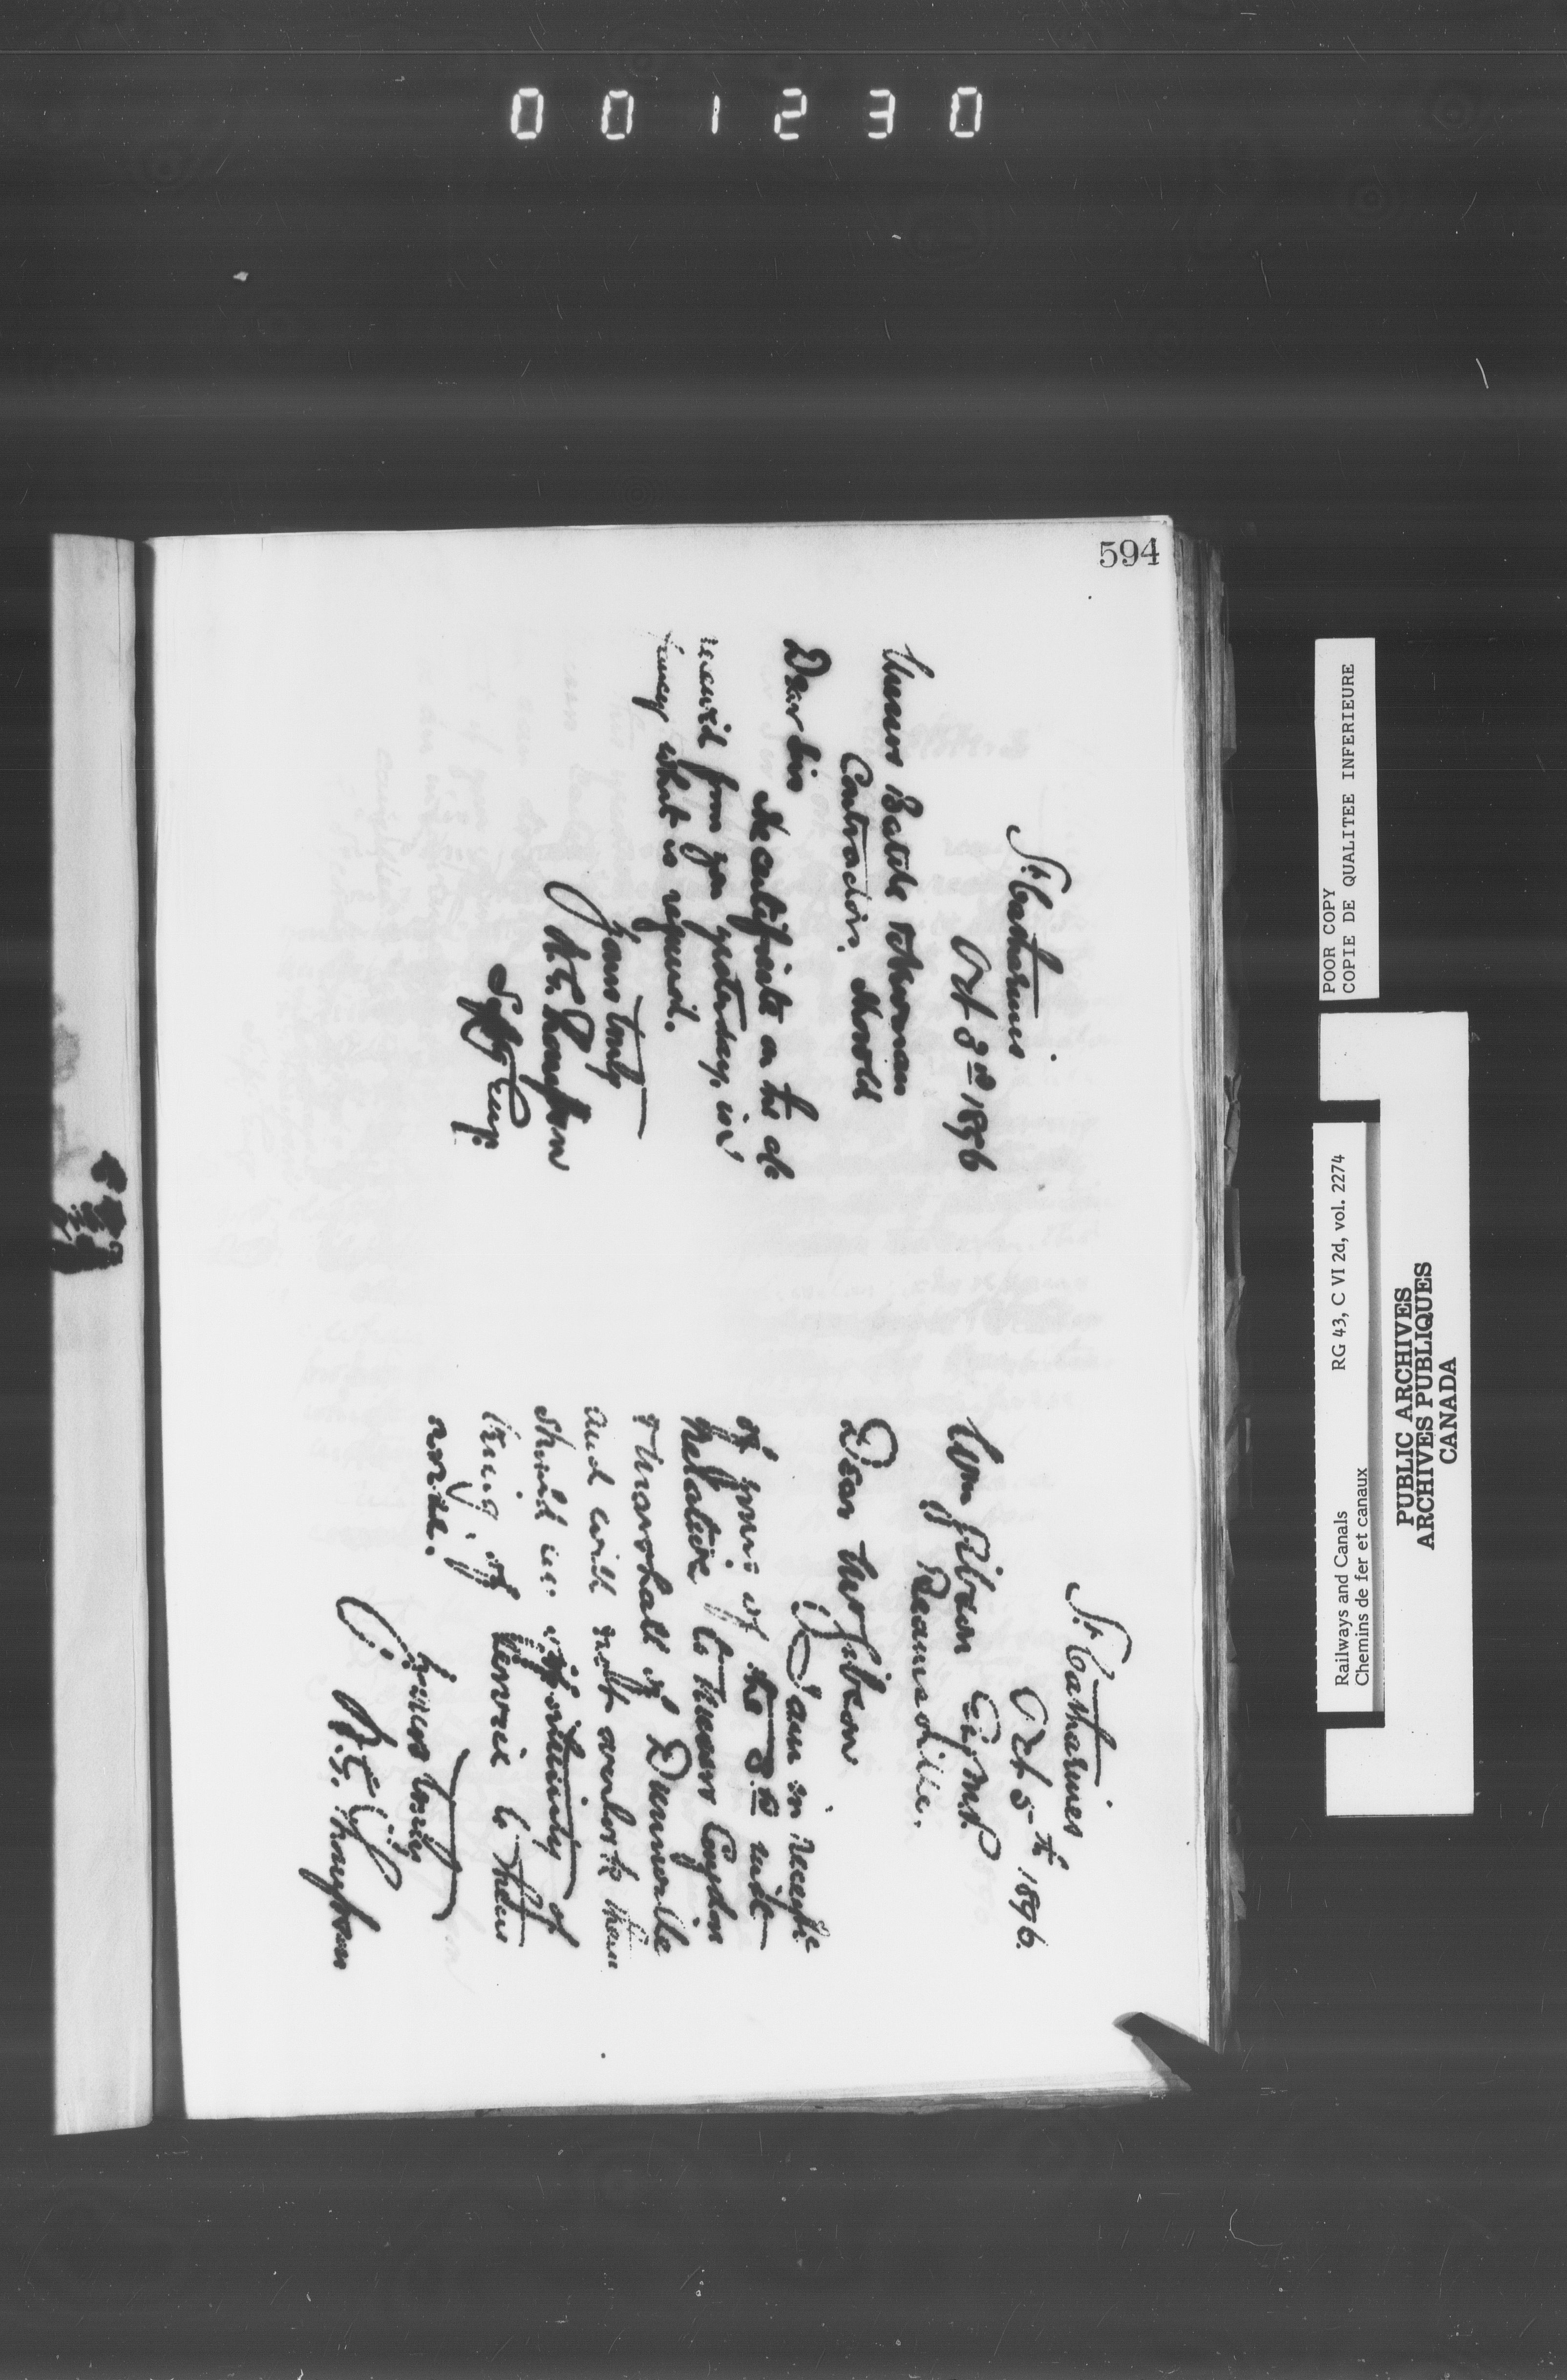 001230
594
St Catharines
Oct 3rd 1896
Messrs Battle & Thorold
Contractors
Dear Sirs
The certificate on the a/c
received from you yesterday, is
what is required.
Yours truly
W.G. Thompson
Supt Eng.
St Catharines
Oct 5th 1896.
Wm Gibson Esq M.P.
Beamsville.
Dear Mr Gibson
I am in receipt
of yours of the 3rd inst
relative to Messrs Congdon
& Marshall of Dunnville
and will not overlook them
should an opportunity of
being of service to them
arise.
Yours truly
W.G. Thompson
POOR COPY
COPIE DE QUALITEE INFERIEURE
Railways and Canals RG 43, C VI 2d, vol. 2274
Chemins de fer et canaux
PUBLIC ARCHIVES
ARCHIVES PUBLIQUES
CANADA